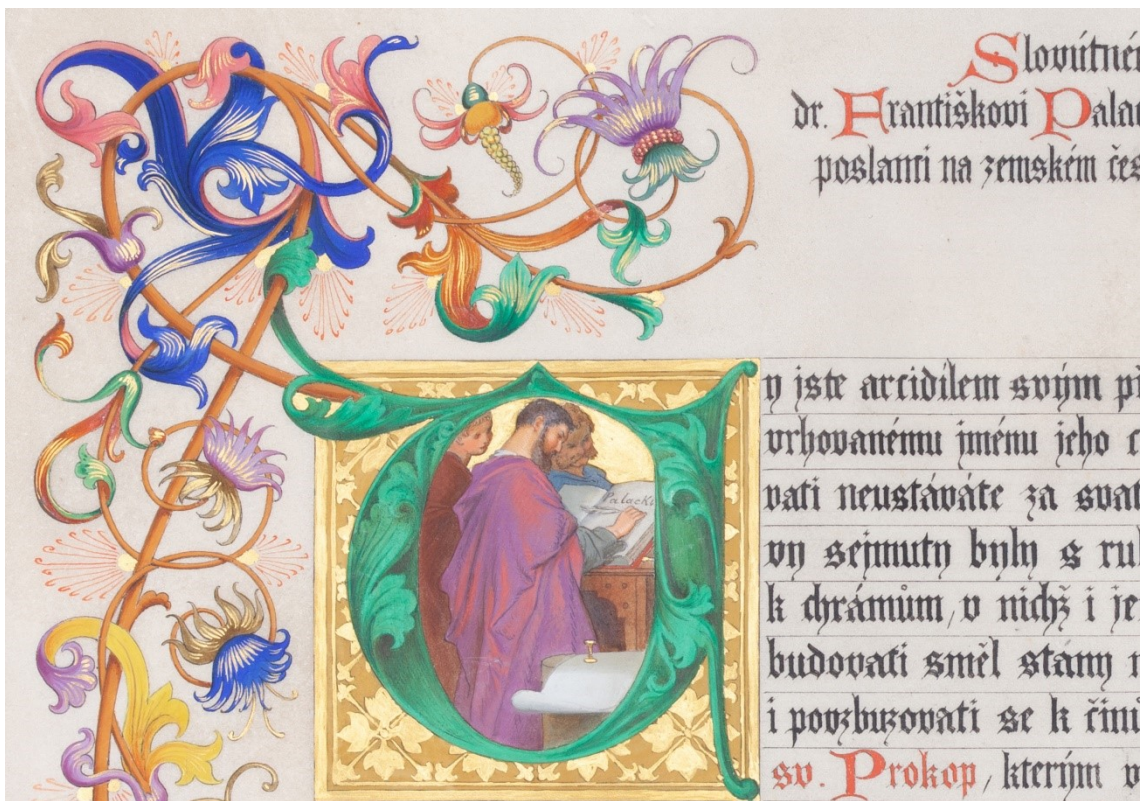 Slovútné
dr. Františkovi Pala
poslanci na zemském čes
Vy jste arcidílem svým př
vrhovanému jménu jeho c
vati neustáváte za svat
vy sejmuty byly s ruk
k chrámům, v nichž i je
budovati směl stány
i povzbuzovati se k činu
sv. Prokop, kterým v
Palacki